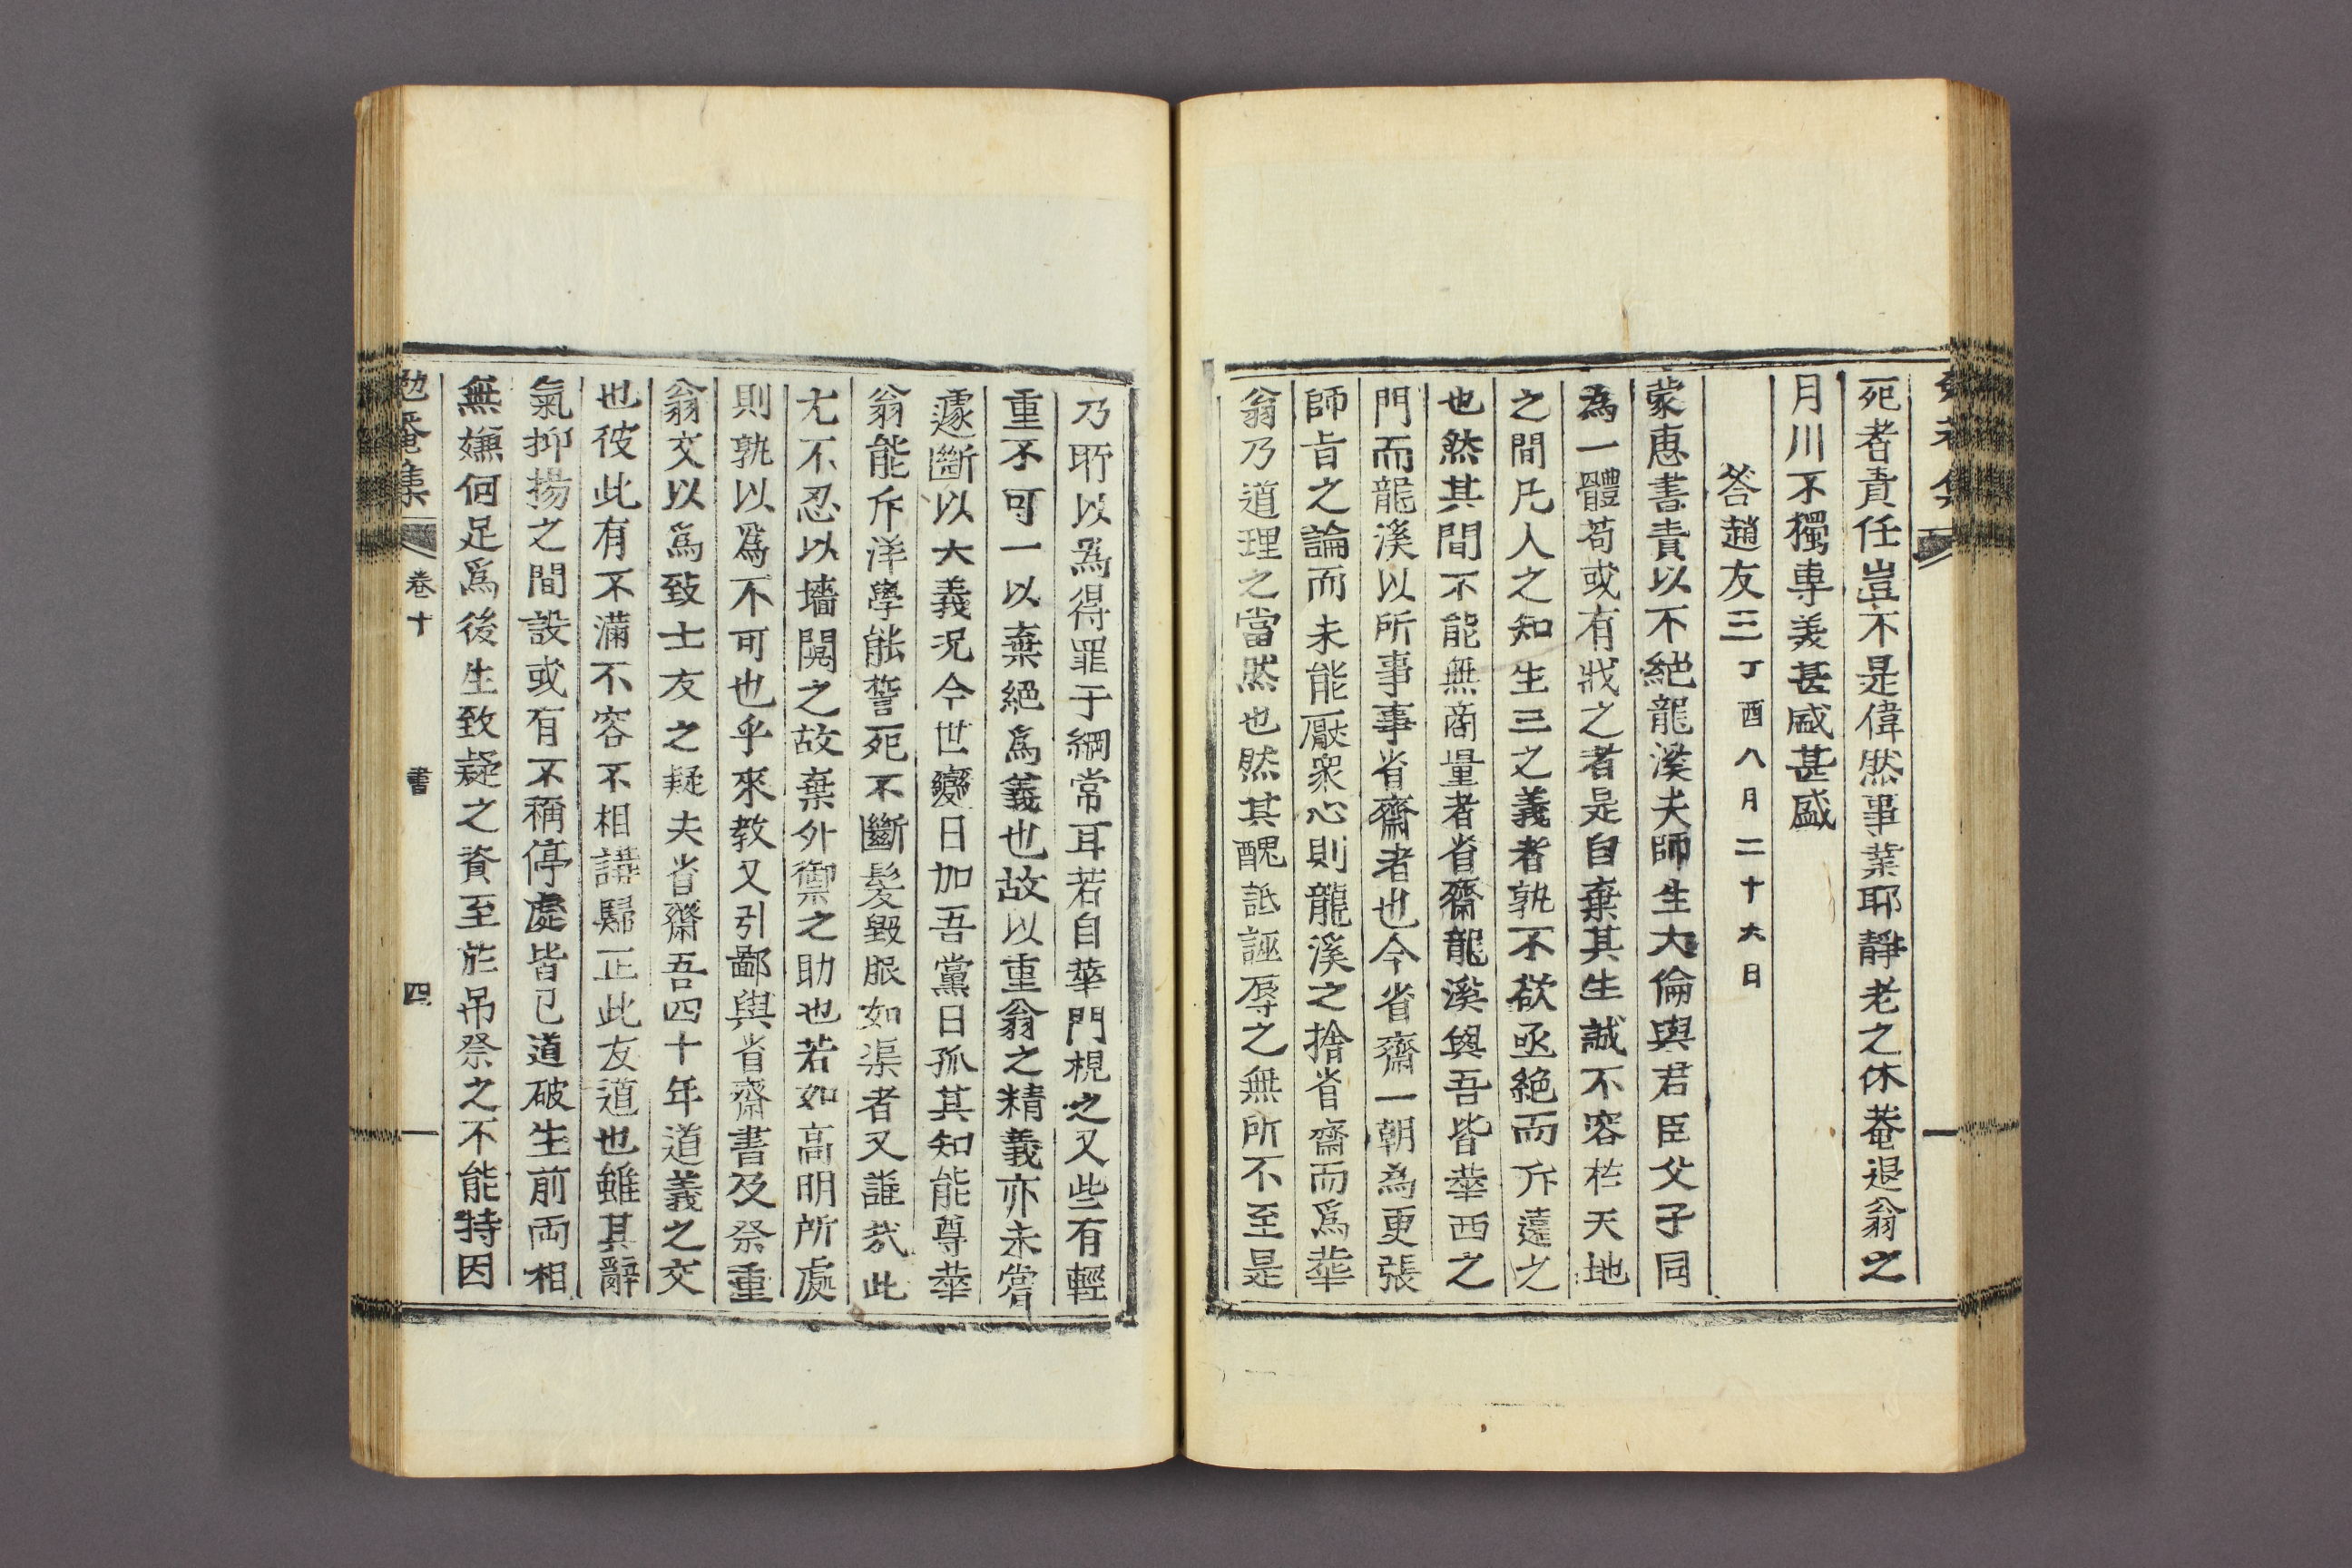 死者責任豈不是偉然事業耶靜老之休菴退翁之
月川不獨專義甚盛甚盛
答趙友三丁酉八月二十六日
蒙惠書責以不絕龍溪夫師生大倫與君臣父子同
爲一體苟或有戕之者是自棄其生誠不容於天地
之間凡人之知生三之義者孰不欲亟絶而斥遠之
也然其間不能無商量者省齋龍溪與吾皆華西之
門而龍溪以所事事省齋者也今省齋一朝爲更張
師旨之論而未能厭衆心則龍溪之捨省齋而爲華
翁乃道理之當然也然其醜詆誣辱之無所不至是
乃所以爲得罪于綱常耳若自華門視之又些有輕
重不可一以棄絕爲義也故以重翁之精義亦未嘗
遽斷以大義况今世變日加吾黨日孤其知能尊華
翁能斥洋學能誓死不斷髮毁服如渠者又誰哉此
尤不忍以墻鬩之故棄外禦之助也若如高明所處
則孰以爲不可也乎來教又引鄙與省齋書及祭重
翁文以爲致士友之疑夫省齋吾四十年道義之交
也彼此有不滿不容不相講歸正此友道也雖其辭
氣抑揚之間設或有不稱停處皆已道破生前兩相
無嫌何足爲後生致疑之資至於吊祭之不能特因
勉菴集 卷十 書 四